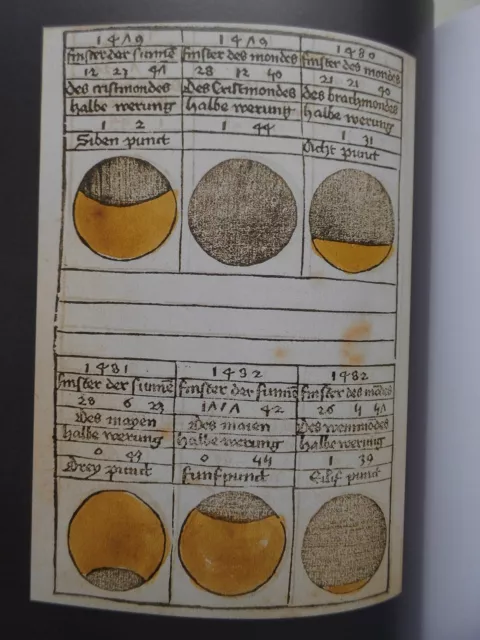 1479
finster der sunnē
12 47
des cristmondes
halbe werung
1 2
Siben punct
1479
finster des mondes
28 12 40
Des Cristmondes
halbe werung
1 44
1480
finster des mondes
21 21 40
des brachmondes
halbe werung
1 31
Acht punct
1481
finster der sunnē
28 6 23
Des mayen
halbe werung
0
Drey punct
1482
finster der sunnē
17 7 42
Des maien
halbe werung
0 44
funf punct
1482
finster des mōdes
26
Des weinmōdes
halbe werung
1 39
Eilif punct